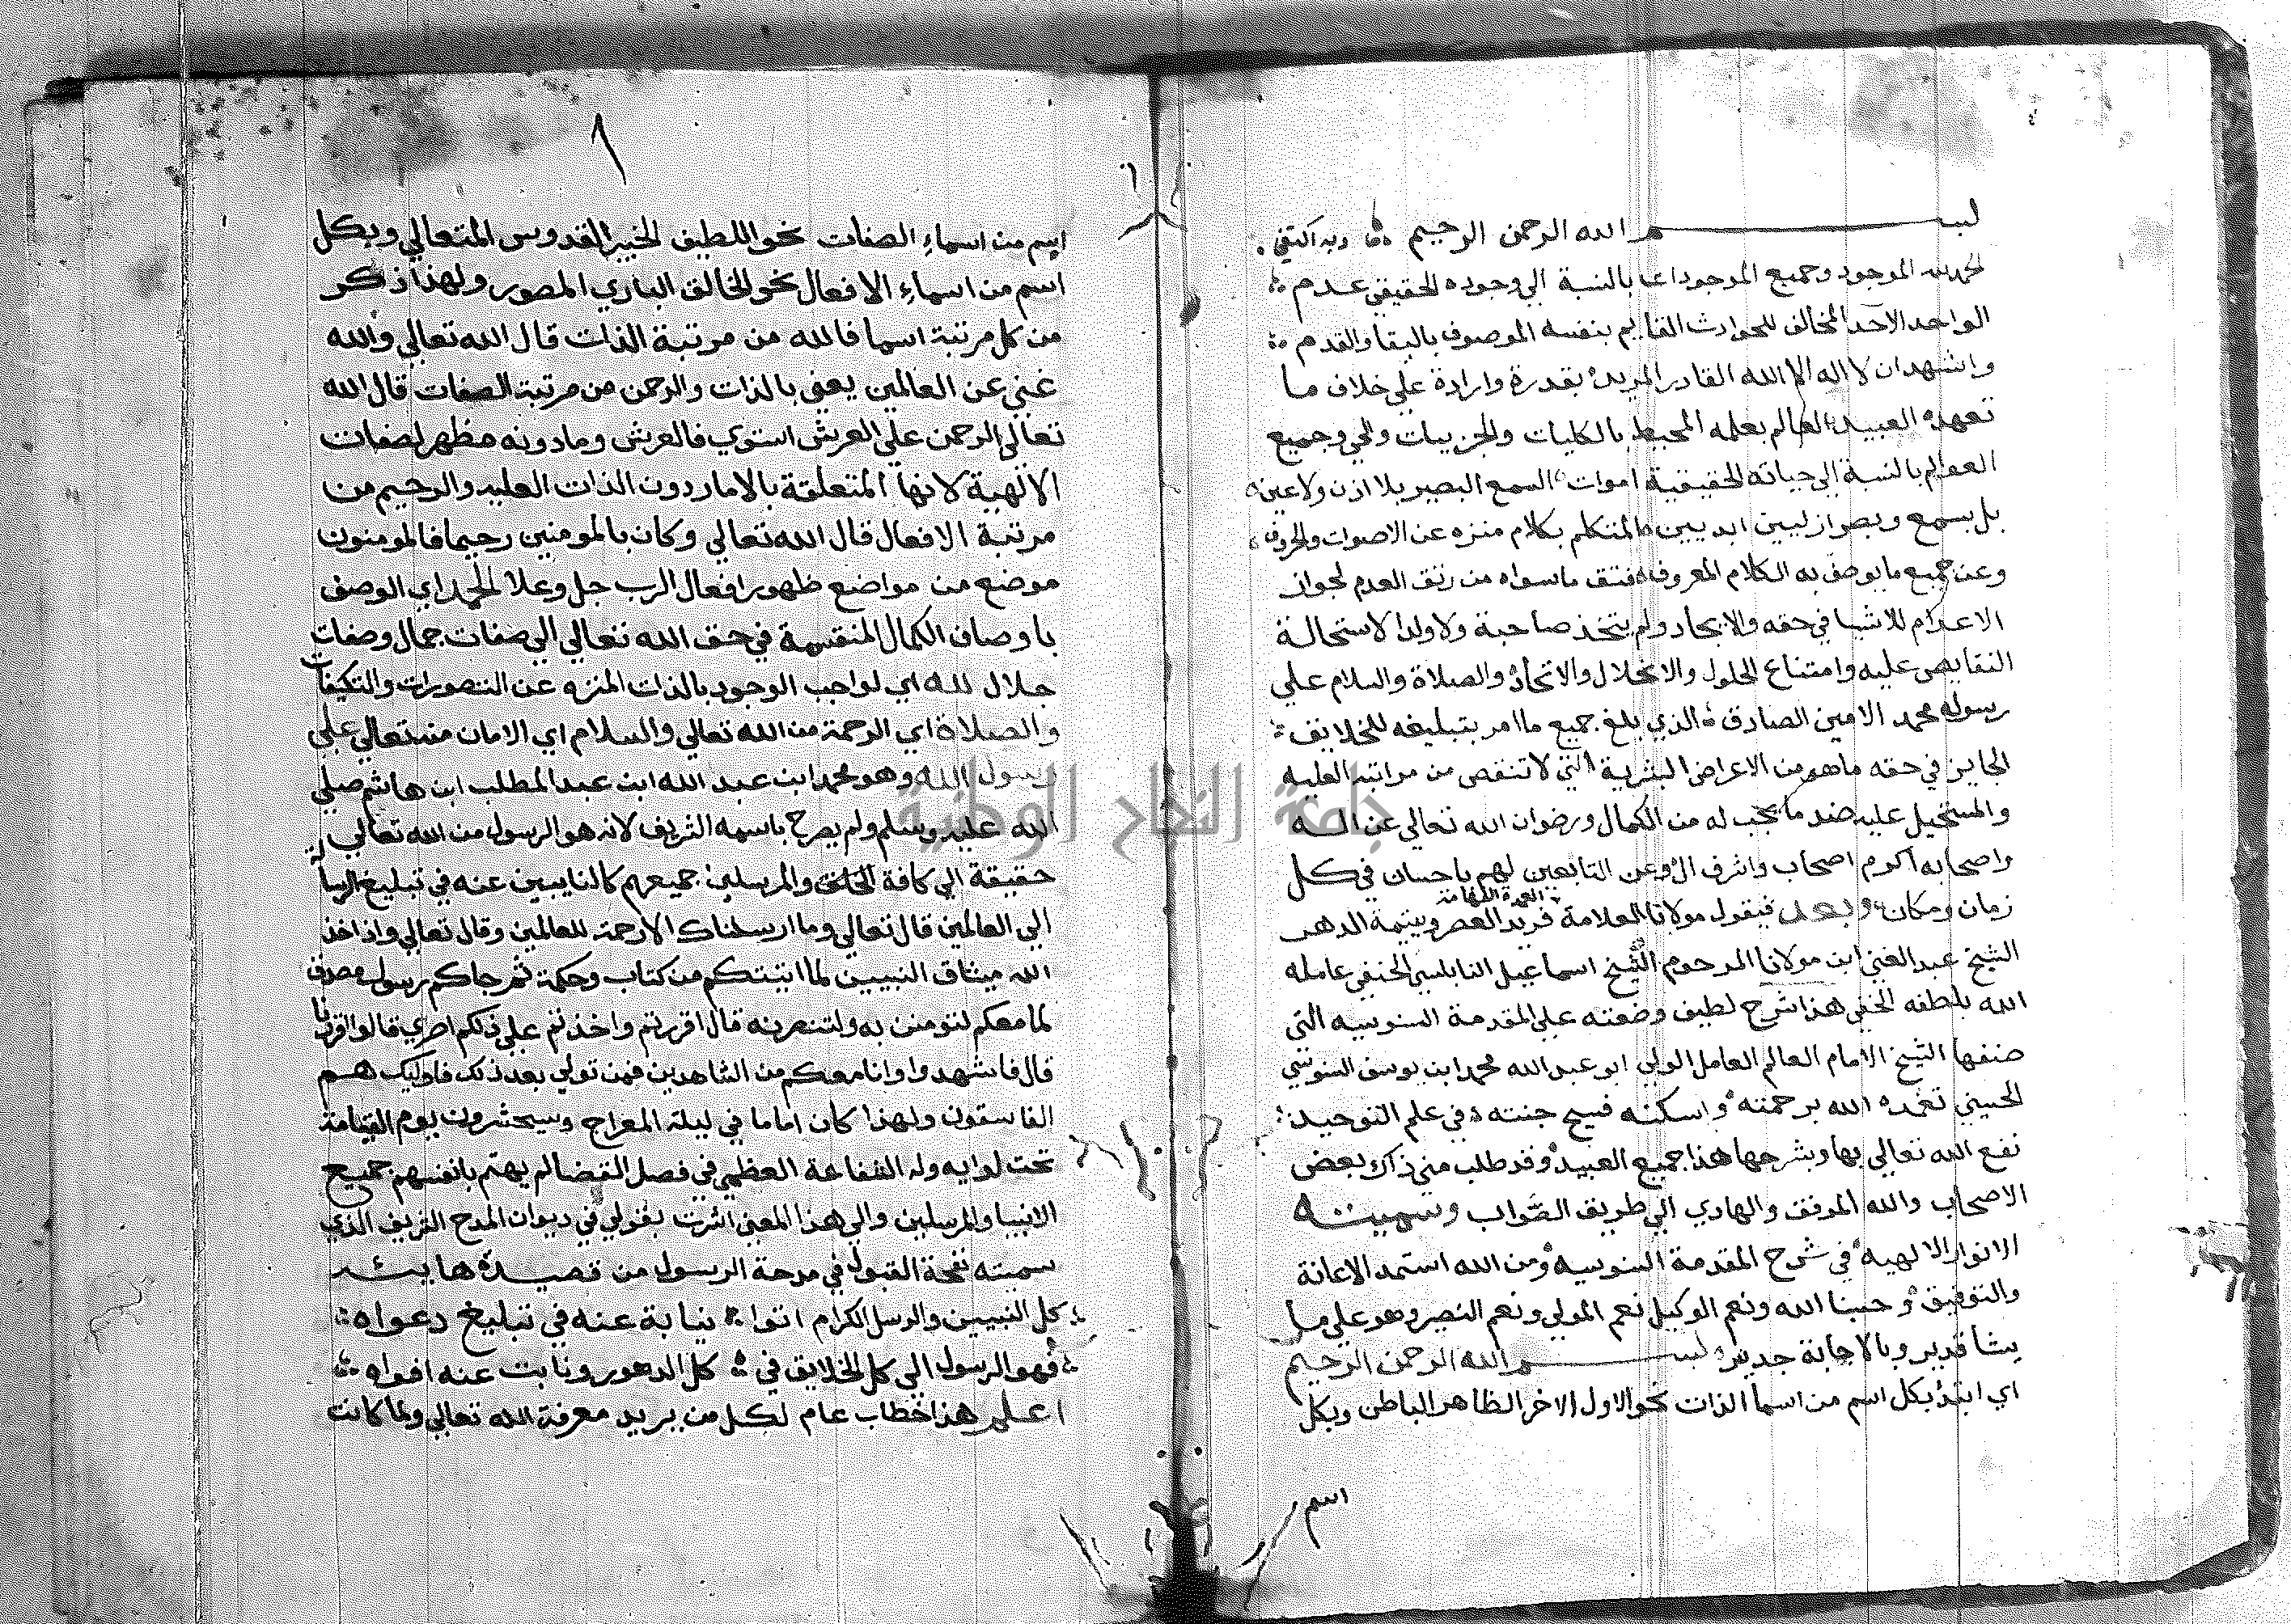 بسم الله الرحمن الرحيم وبه اكتفي
الحمد لله الموجود وجميع الموجودات بالنسبة الي وجوده الحقيقي عدم
الواحد الاحد المخالف للحوادث القايم بنفسه الموصوف بالبقا والقدم
واشهد ان لا اله الا الله القادر المريد بقدرة وارادة علي خلاف ما
تعهده العبيد العالم بعلمه المحيط بالكليات والجزييات والحي وجميع
العوالم بالنسبة الي حياته الحقيقية اموات السمع البصير بلا اذن ولا عين
بل بسمع وبصر ازليين ابديين المتكلم بكلام منزه عن الاصوات والحروف
وعن جميع ما يوصف به الكلام المعروف فتق ما سواه من رتق العدم لجواز
الاعدام للاشيا في حقه والايجاد ولم يتخذ صاحبة ولا ولدا لاستحالة
النقايص عليه وامتناع الحلول والانحلال والاتحاد والصلاة والسلام علي
رسوله محمد الامين الصادق الذي بلغ جميع ما امر بتبليغه للخلايق
الجايز في حقه ما هو من الاعراض البشرية التي لا تنقص من مراتبه العلية
والمستحيل عليه ضد ما يجب له من الكمال ورضوان الله تعالي عن اله
واصحابه اكرم اصحاب واشرف ال وعن التابعين لهم باحسان في كل
العمدة الفهامة
زمان ومكان وبعد فيقول مولانا العلامة فريد العصر ويتيمة الدهر
الشيخ عبد الغني ابن مولانا المرحوم الشيخ اسماعيل النابلسي الحنفي عامله
الله بلطفه الخفي هذا شرح لطيف وضعته علي المقدمة السنوسيه التي
صنفها الشيخ الامام العالم العامل الولي ابو عبد الله محمد ابن يوسف السنوسي
الحسيني تغمده الله برحمته واسكنه فسيح جنته في علم التوحيد
نفع الله تعالي بها وبشرحها هذا جميع العبيد وقد طلب مني ذلك بعض
الاصحاب والله الموفق والهادي الي طريق الصواب وسميته
الانوار الالهيه في شرح المقدمة السنوسيه ومن الله استمد الاعانة
والتوفيق وحسبنا الله ونعم الوكيل نعم المولي ونعم النصير وهو علي ما
يشا قدير وبالاجابة جدير بسم الله الرحمن الرحيم
اي ابتدئ بكل اسم من اسما الذات نحو الاول الاخر الظاهر الباطن وبكل
اسم
١
اسم من اسماء الصفات نحو اللطيف الخبير القدوس المتعالي وبكل
اسم من اسماء الافعال نحو الخالق الباري المصور ولهذا ذكر
من كل مرتبة اسما فالله من مرتبة الذات قال الله تعالي والله
غني عن العالمين يعني بالذات والرحمن من مرتبة الصفات قال الله
تعالي الرحمن علي العرش استوي فالعرش وما دونه مظهر لصفات
الالهية لانها المتعلقة بالامار دون الذات العليه والرحيم من
مرتبة الافعال قال الله تعالي وكان بالمومنين رحيما فالمومنون
موضع من مواضع ظهور افعال الرب جل وعلا الحمد اي الوصف
باوصاف الكمال المنقسمة في حق الله تعالي الي صفات جمال وصفات
جلال لله اي لواجب الوجود بالذات المنزه عن التصورات والتكيفات
والصلاة اي الرحمة من الله تعالي والسلام اي الامان منه تعالي علي
رسول الله وهو محمد ابن عبد الله ابن عبد المطلب ابن هاشم صلي
الله عليه وسلم ولم يصرح باسمه الشريف لانه هو الرسول من الله تعالي
حقيقة الي كافة الخلق والمرسلين جميعهم كالنايبين عنه في تبليغ الرسالة
الي العالمين قال تعالي وما ارسلناك الا رحمة للعالمين وقال تعالي واذ اخذ
الله ميثاق النبيين لما اتيتكم من كتاب وحكمة ثم جاكم رسول مصدق
لما معكم لتومنن به ولتنصرنه قال اقررتم واخذتم علي ذلكم اصري قالوا اقررنا
قال فاشهدوا وانا معكم من الشاهدين فمن تولي بعد ذلك فاوليك هم
الفاسقون ولهذا كان اماما في ليلة المعراج وسيحشرون يوم القيامة
تحت لوايه وله الشفاعة العظمي في فصل القضا لم يهتم بانفسهم جميع
الانبيا والمرسلين والي هذا المعني اشرت بقولي في ديوان المدح الشريف الذي
سميته نفحة القبول في مدحة الرسول من قصيدة هايية
كل النبيين والرسل الكرام اتوا نيابة عنه في تبليغ دعواه
فهو الرسول الي كل الخلايق في كل الدهور ونابت عنه افواه
اعلم هذا خطاب عام لكل من يريد معرفة الله تعالي ولما كانت
جامعة النجاح الوطنية